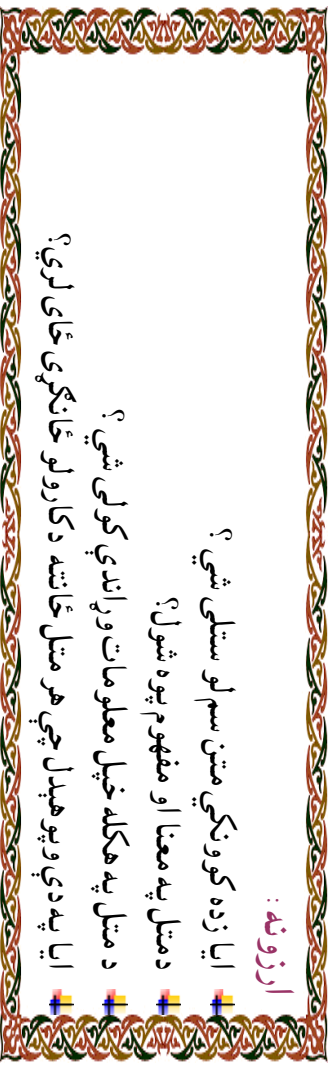 ارزونه :
ایا زده کوونکي متن سم لوستلی شي ؟
دمتل په معنا او مفهوم پوه شول؟
د متل په هکله خپل معلومات وړاندې کولی شي ؟
ایا په دې وپوهېدل چې هر متل ځانته د کارولو ځانګړی ځای لري؟